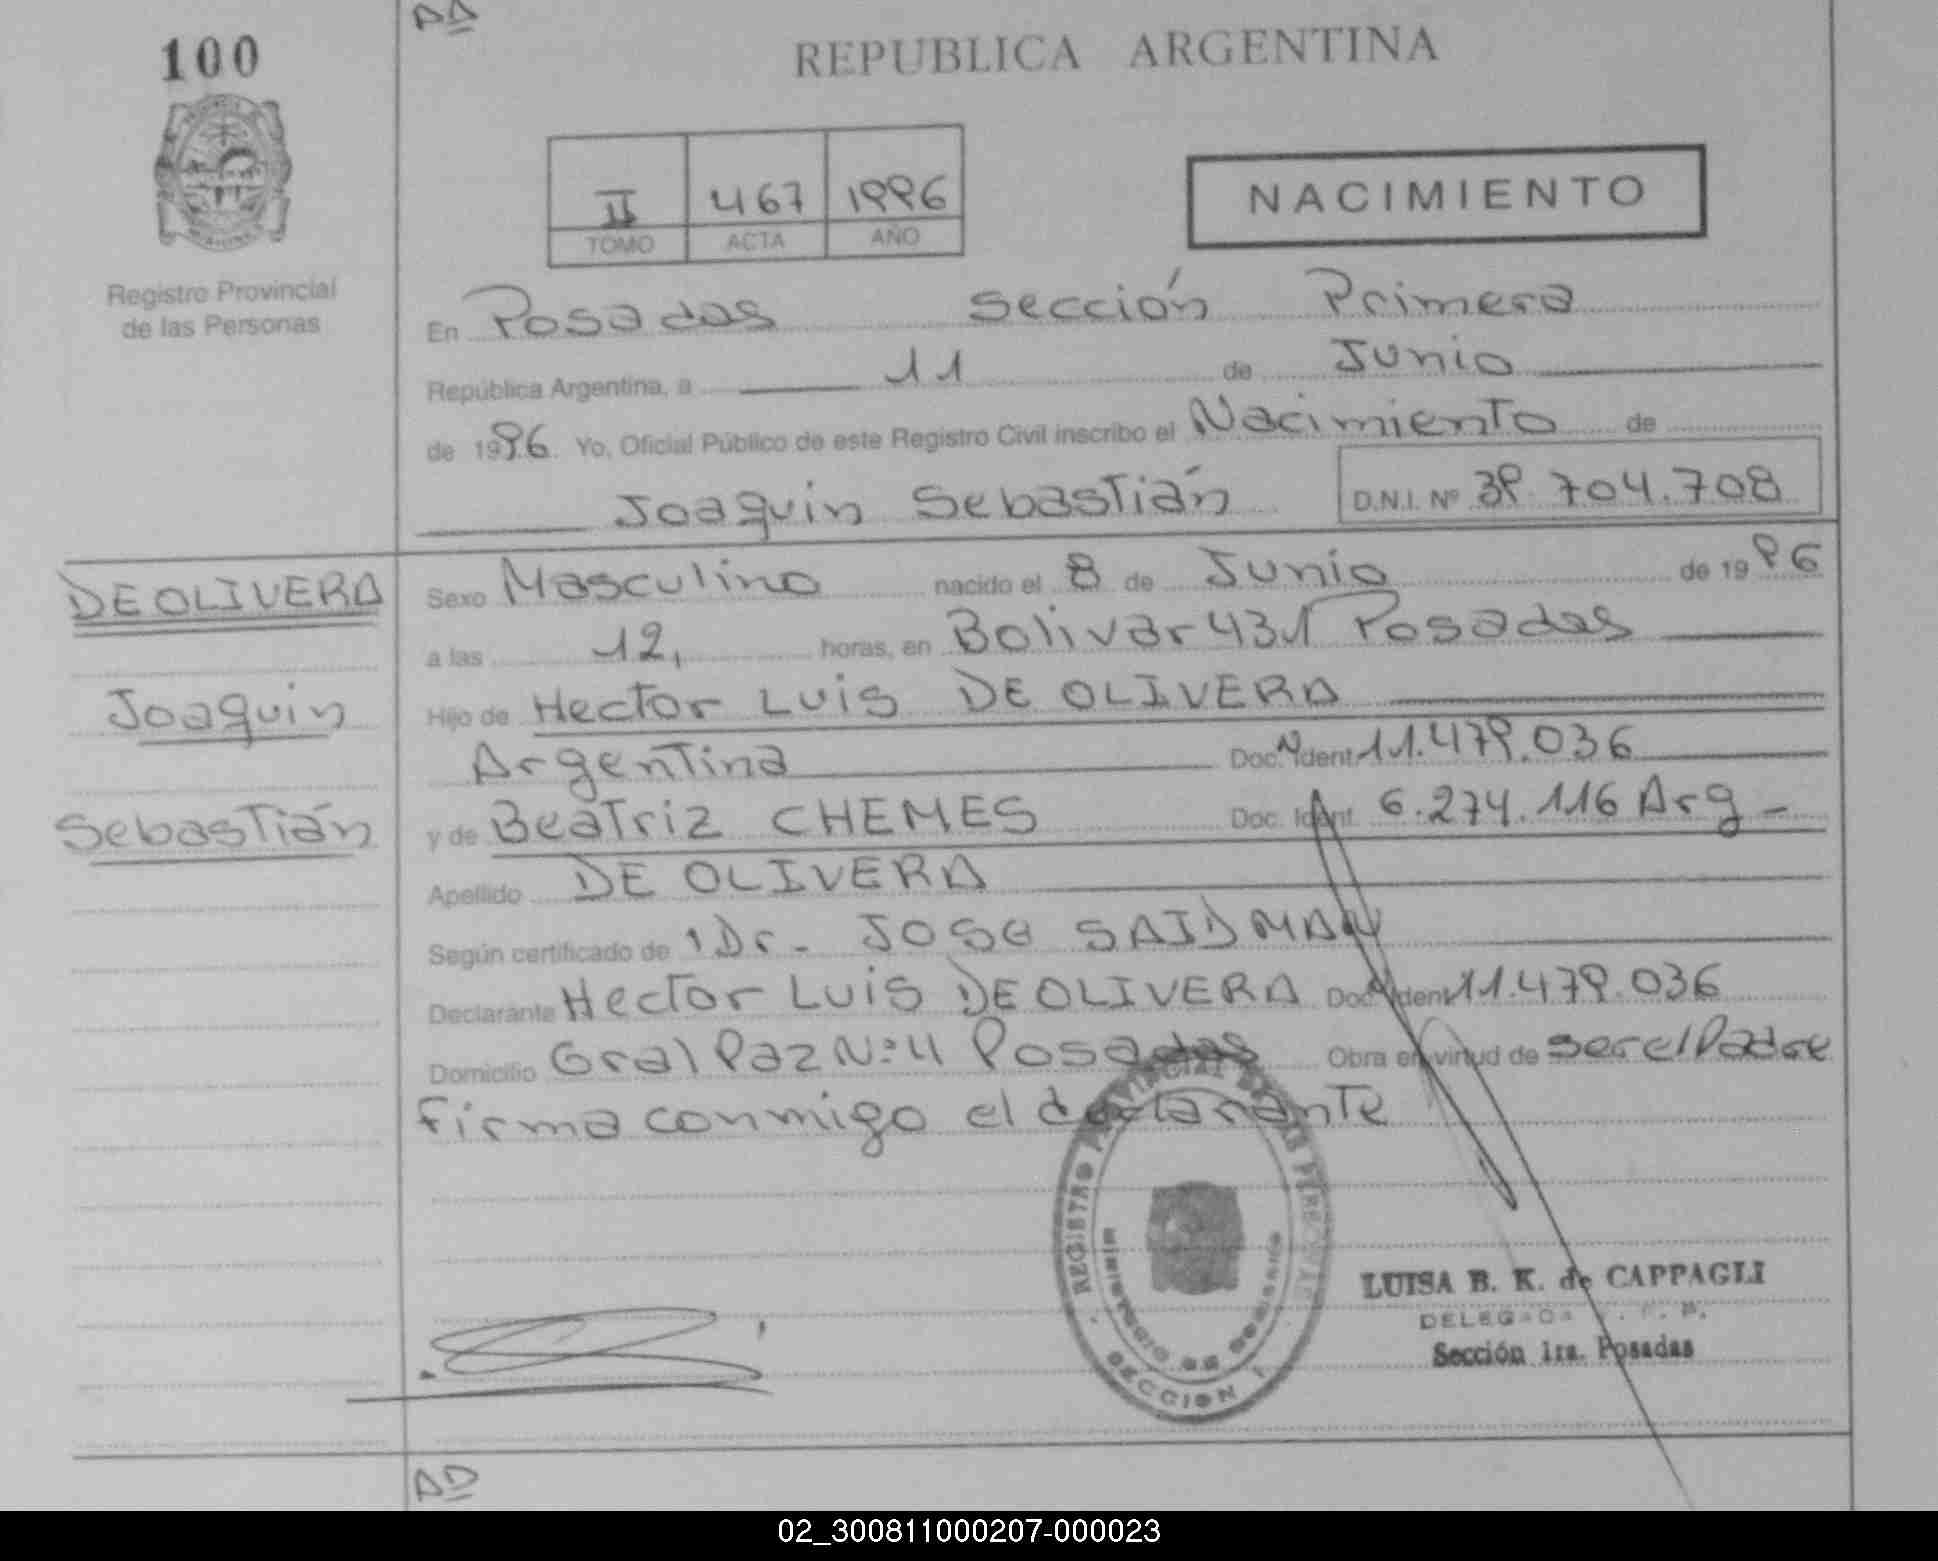 AD
100
REPUBLICA ARGENTINA
II 467 1996
TOMO ACTA AÑO
NACIMIENTO
Registro Provincial
de las Personas
En Posadas sección Primera
República Argentina, a 11 de Junio
de 1996. Yo, Oficial Público de este Registro Civil inscribo el Nacimiento de
Joaquin Sebastián D.N.I. Nº 39.704.708
DE OLIVERA
Joaquin
Sebastián
Sexo Masculino nacido el 8 de Junio de 1996
a las 12, horas, en Bolivar 431 Posadas
Hijo de Hector Luis DE OLIVERA
Argentina Doc. Ident 11.479.036
y de Beatriz CHEMES Doc. Ident. 6.274.116 Arg -
Apellido DE OLIVERA
Según certificado de Dr. JOSE SAIDMAN
Declarante Hector Luis DE OLIVERA Doc. Ident 11.479.036
Domicilio Gral Paz Nº 4 Posadas Obra en virtud de ser el Padre
Firma conmigo el declarante
REGISTRO PROVINCIAL DE LAS PERSONAS
MINISTERIO DE GOBIERNO
SECCION 1
LUISA B. K. de CAPPAGLI
DELEGADA
Sección 1ra. Posadas
AD
02_300811000207-000023